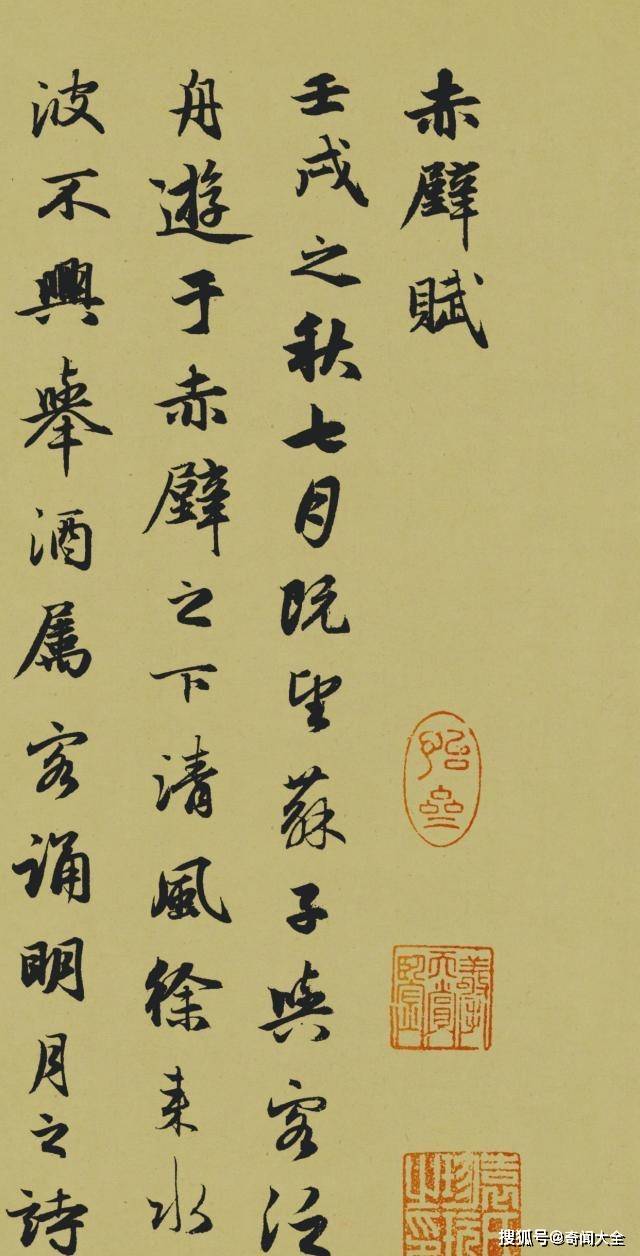 赤壁賦
壬戌之秋七月既望蘇子與客泛
舟遊于赤壁之下清風徐来水
波不興舉酒属客誦明月之詩
搜狐号@奇闻大全